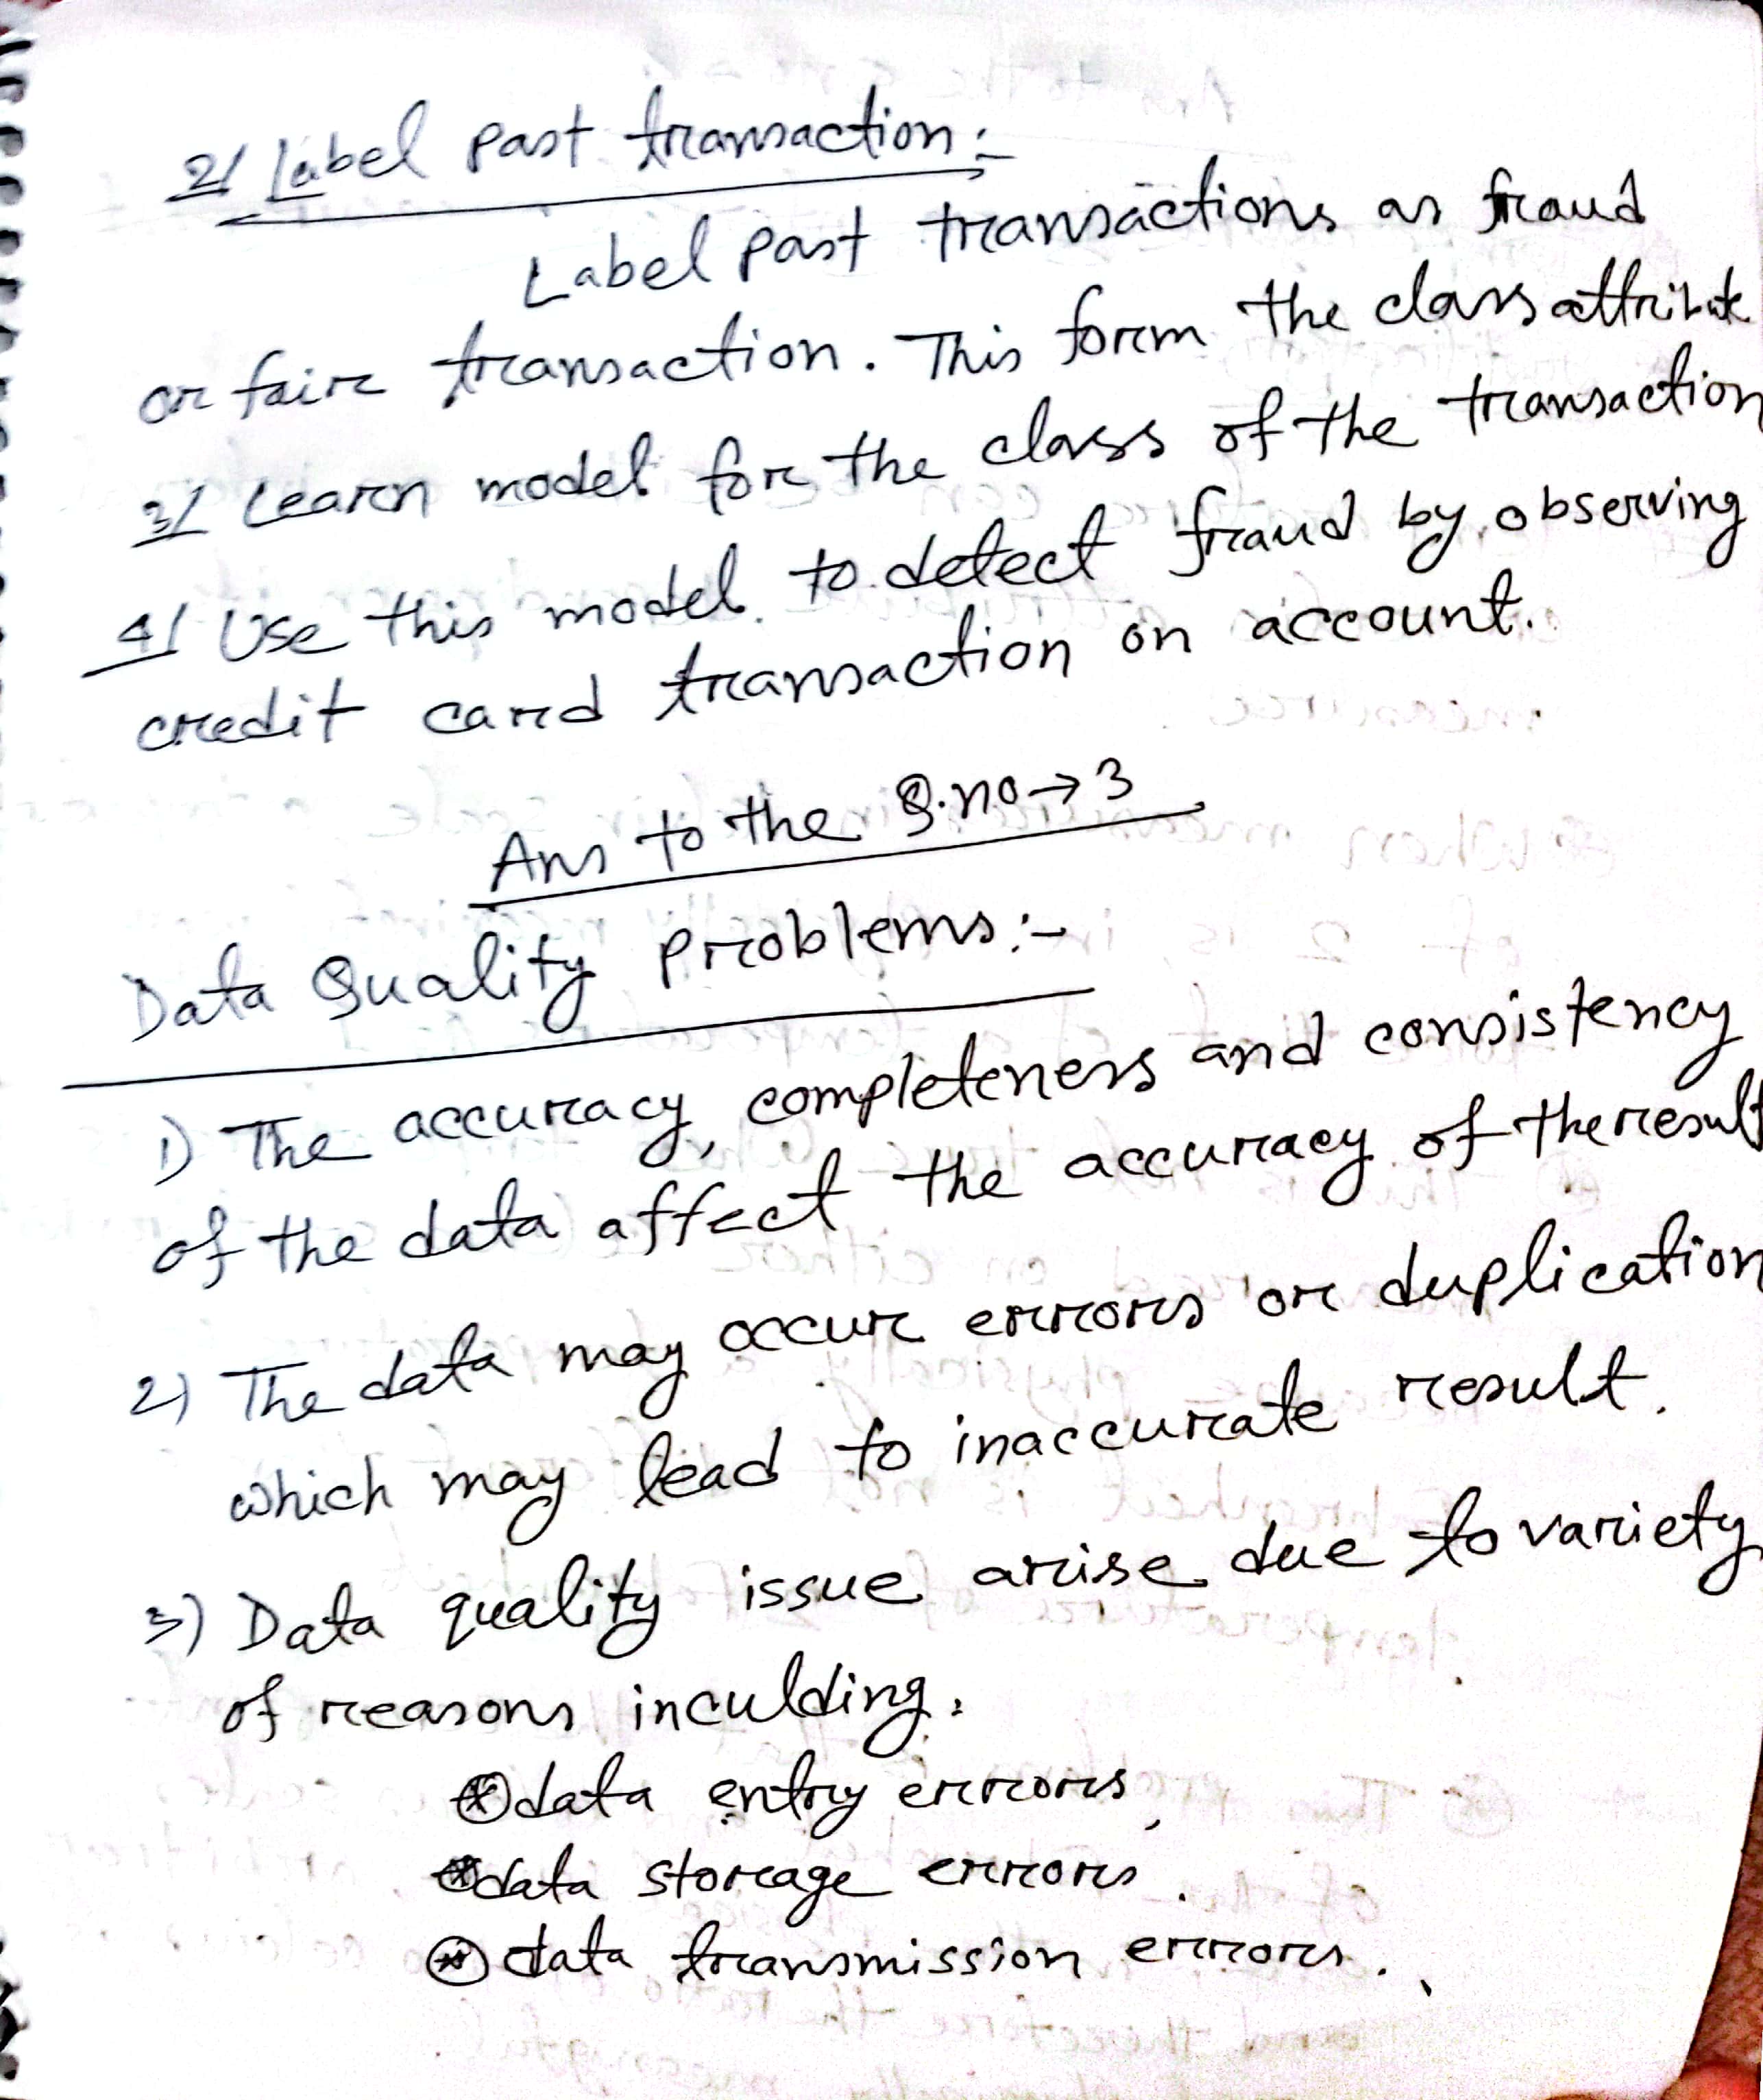 2/ Label past transaction:-
Label past transactions as fraud
or fair transaction. This form the class attribute
3/ Learn model for the class of the transaction
4/ Use this model to detect fraud by observing
credit card transaction on account.
Ans to the Q.no→3
Data Quality problems:-
1) The accuracy, completeness and consistency
of the data affect the accuracy of the result
2) The data may occur errors or duplication
which may lead to inaccurate result.
3) Data quality issue arise due to variety
of reasons inculding,
⊛ data entry errors,
⊛ data storage errors.
⊛ data transmission errors.